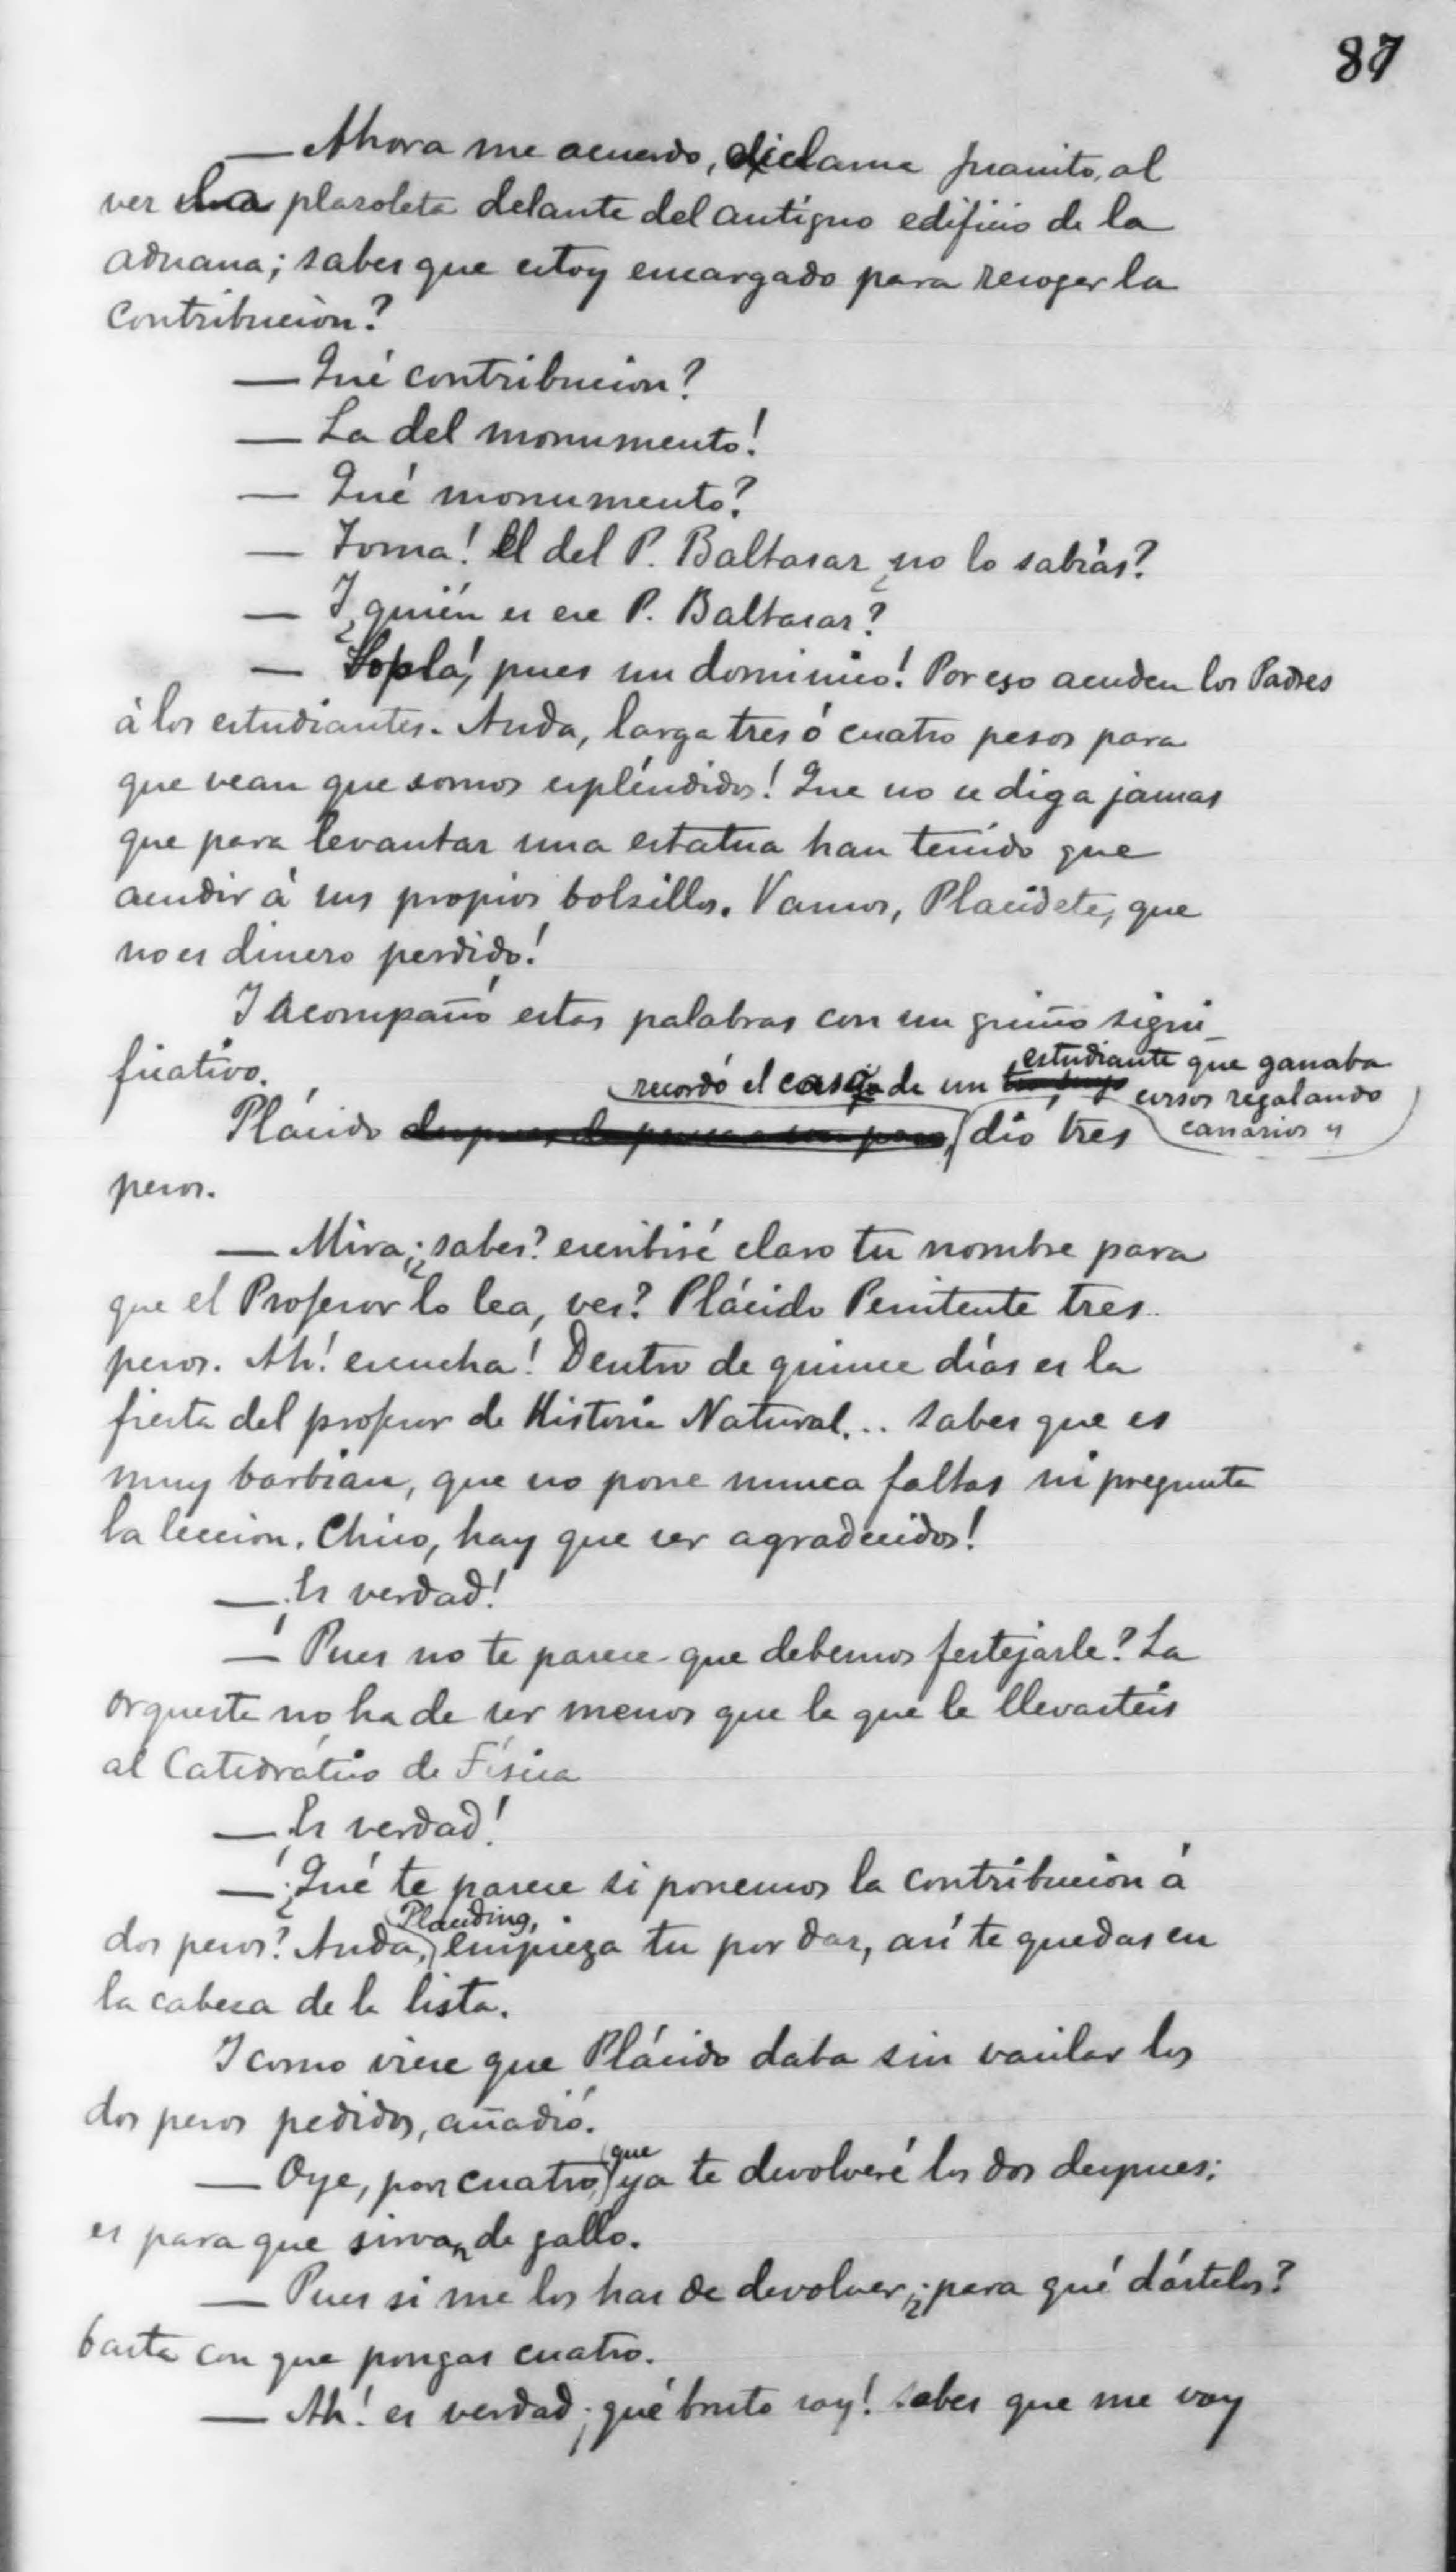 87
— Ahora me acuerdo, exclama Juanito, al
ver la plazoleta delante del antíguo edificio de la
aduana; sabes que estoy encargado para recoger la
contribución?
— Qué contribucion?
— La del monumento!
— Qué monumento?
— Toma! El del P. Baltasar ¿no lo sabías?
— Y ¿quién es ese P. Baltasar?
— Sopla! pues un dominico! Por eso acuden los Padres
á los estudiantes. Anda, larga tres ó cuatro pesos para
que vean que somos espléndidos! Que no se diga jamas
que para levantar una estatua han tenido que
acudir á sus propios bolsillos. Vamos, Placidete, que
no es dinero perdido!
Y acompañó estas palabras con un guiño signi-
ficativo.
recordó el caso de un estudiante que ganaba
cursos regalando
canarios y
Plácido dió tres
pesos.
— Mira ¿sabes? escribiré claro tu nombre para
que el Profesor lo lea, ves? Plácido Penitente tres
pesos. Ah! escucha! Dentro de quince días es la
fiesta del profesor de Historia Natural... Sabes que es
muy barbian, que no pone nunca faltas ni pregunta
la leccion. Chico, hay que ser agradecidos!
— ¡Es verdad!
— Pues no te parece que debemos festejarle? La
orquesta no ha de ser menos que la que le llevasteis
al Catedrático de Física
— ¡Es verdad!
— ¿Qué te parece si ponemos la contribucion á
dos pesos? Anda, Placiding, empieza tu por dar, así te quedas en
la cabeza de la lista.
Y como viese que Plácido daba sin vacilar los
dos pesos pedidos, añadió.
— Oye, pon cuatro, que ya te devolveré los dos despues;
es para que sirvan de gallo.
— Pues si me los has de devolver, ¿para qué dártelos?
basta con que pongas cuatro.
— Ah! es verdad ¡qué bruto soy! sabes que me voy